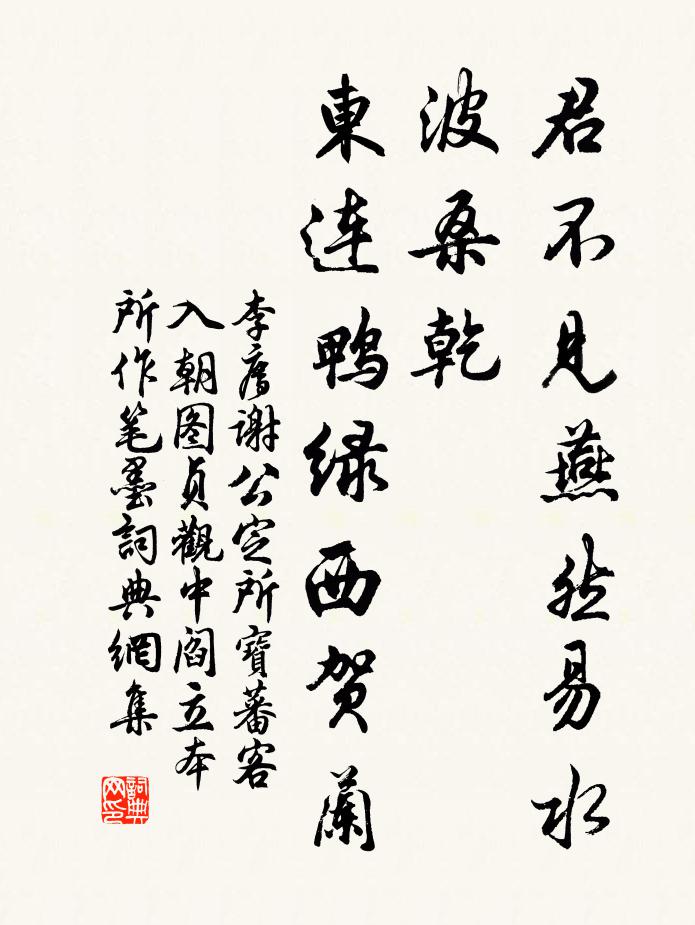 君不見燕然易水
波桑乾
東連鴨緑西賀蘭
李廌謝公定所寶蕃客
入朝图貞觀中阎立本
所作笔墨詞典網集
詞典网印